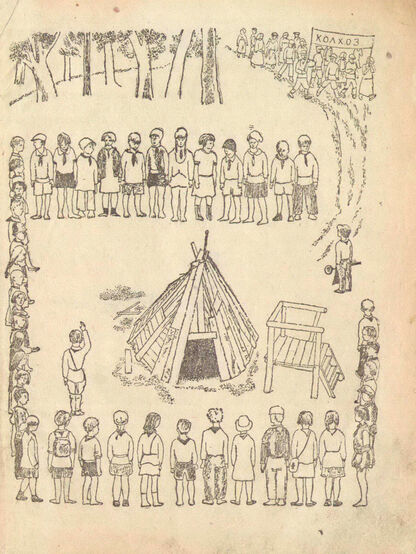 КОЛХОЗ